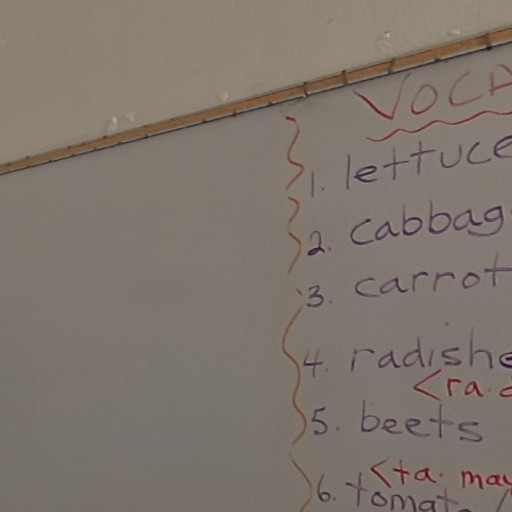 VOCA
1. lettuce
2. cabbag
3. carrot
4. radishe
<ra.
5. beets
<ta. may
6. tomat